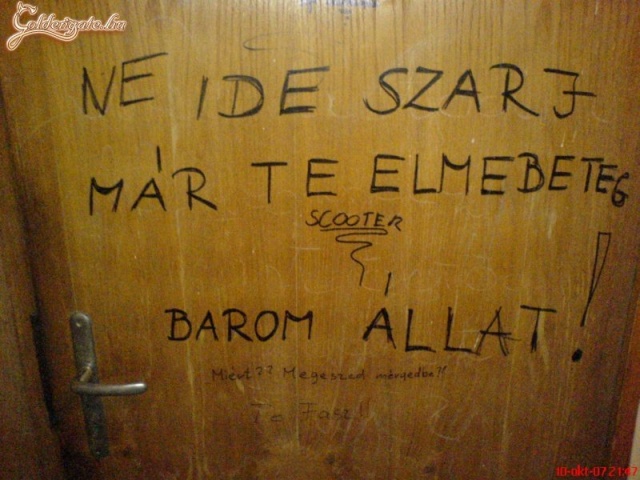 Goldengate.hu
NE IDE SZARJ
MÁR TE ELMEBETEG
SCOOTER
BAROM ÁLLAT!
Miért?? Megeszed mérgedbe?!
Te Fasz!!
10-okt-07 21:47